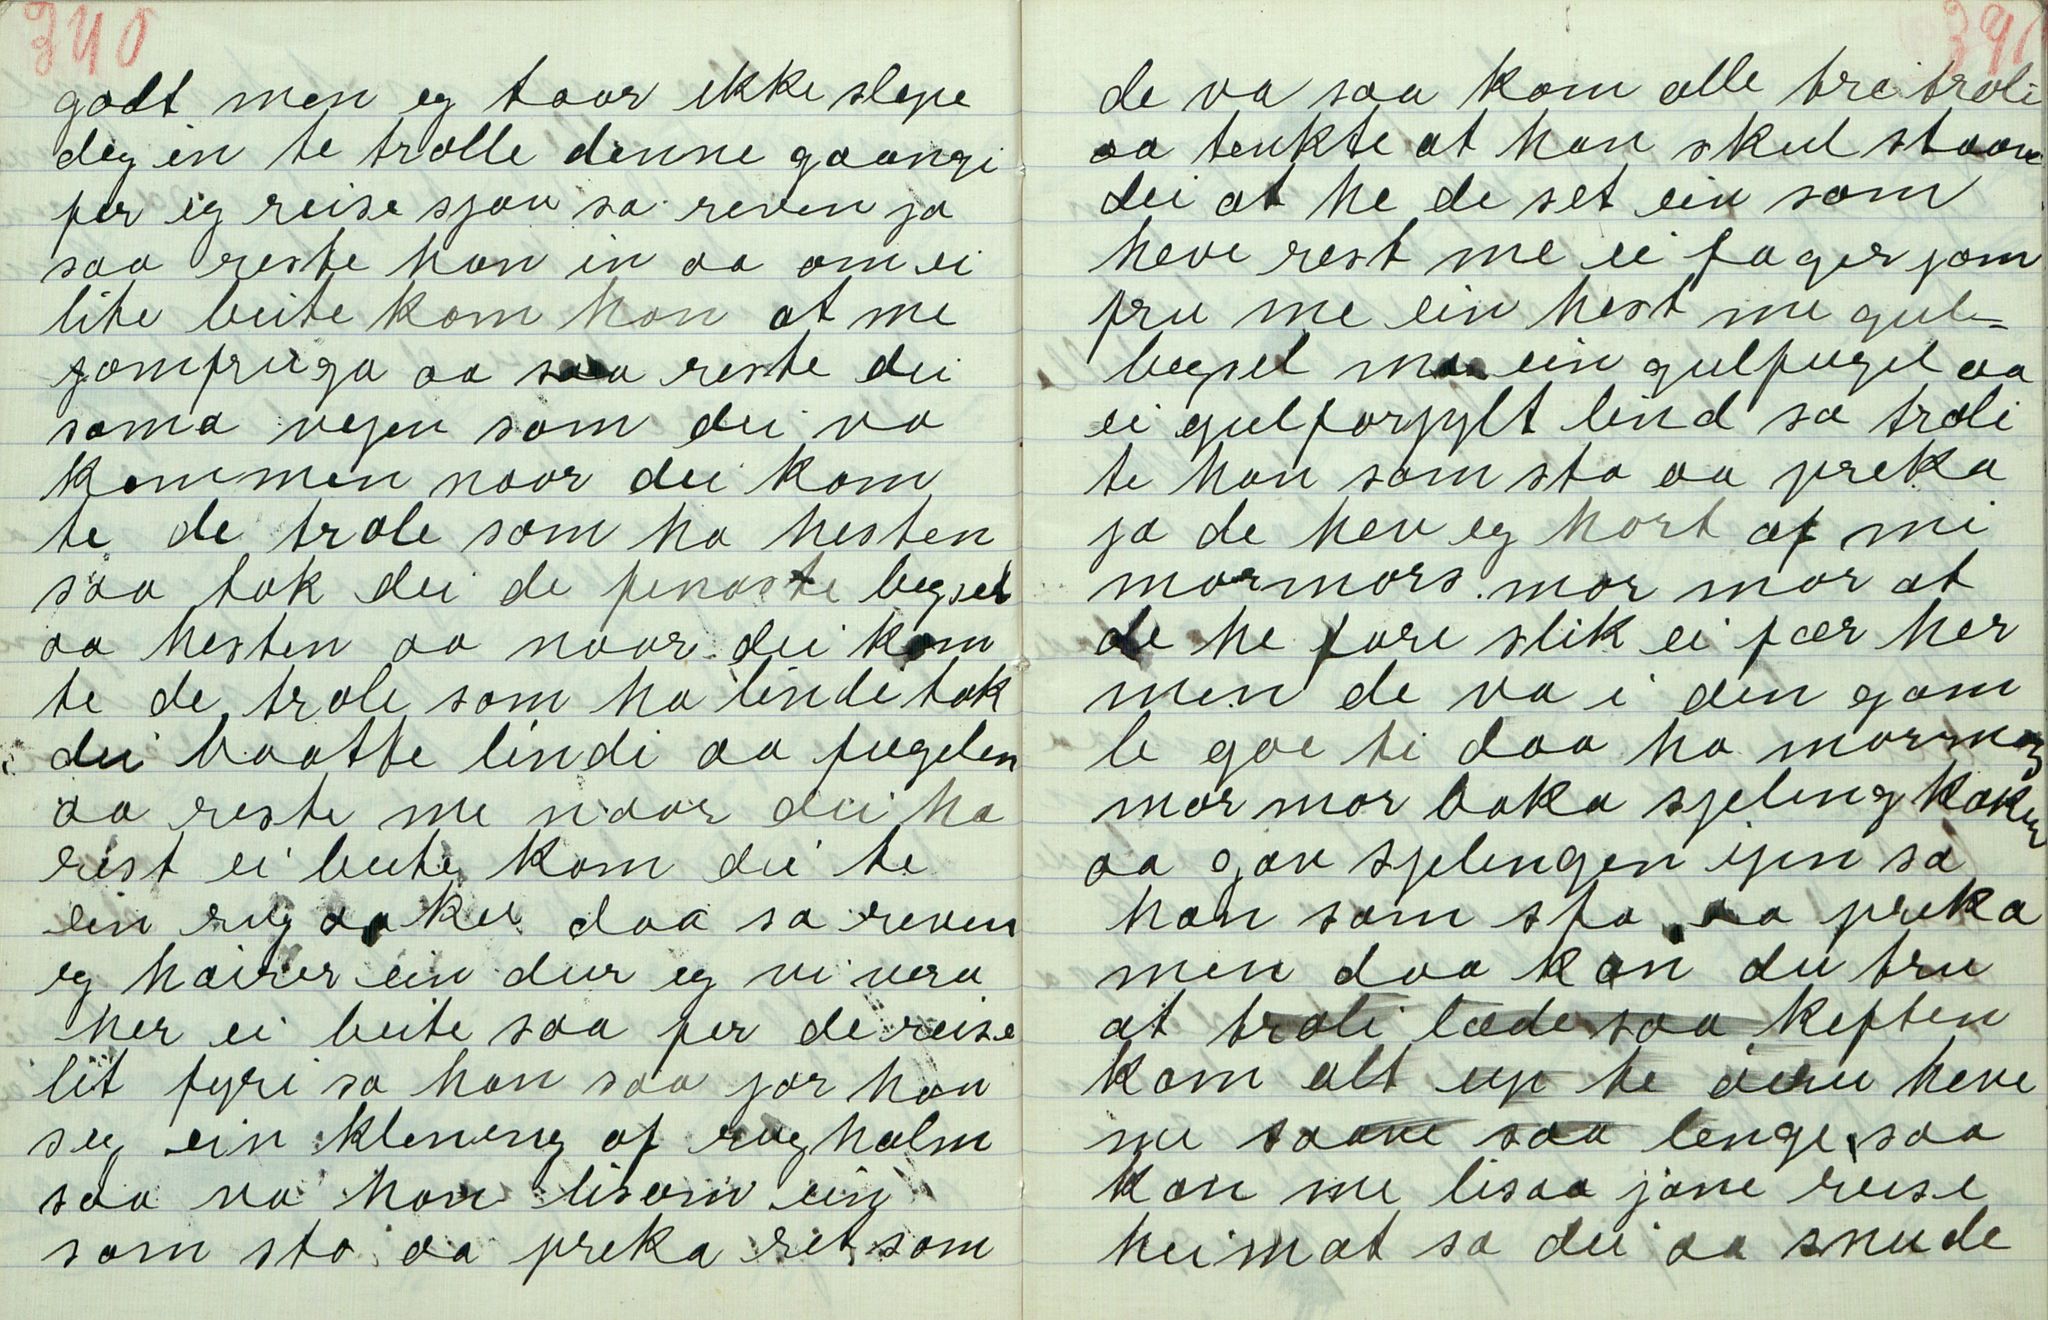 340
godt men eg taar ikke slepe
deg in te trolle denne gaangi
fer eg reise sjøv sa reven ja
saa reste han in aa om ei
lite beite kom han at me
jomfruga aa saa reste dei
sama vegen som dei va
kommen naar dei kom
te de trole som ha hesten
saa tok dei de penaste begsel
aa hesten aa naar dei kom
te de trole som ha linde tok
dei baatte lindi aa fugelen
aa reste me naar dei ha
rest ei beite kom dei te
ein rugaaker daa sa reven
eg hairer ein dur eg vi vera
her ei beite saa fer de reise
lit fyri sa han saa jor han
seg ein klening af rughalm
saa va han lisom ein
som sto aa preka ret som
391
de va saa kom alle tre troli
aa tenkte at han skul staane
dei at he de set ein som
heve rest me ei fager jom
fru me ein hest me gul-
begsel me ein gulfugel aa
ei gulforgylt lind sa troli
te han som sto aa preka
ja de hev eg hort af mi
mormors mor mor at
de he fore slik ei fær her
men de va i den gam
le goe ti daa ha mormors
mor mor baka sjeling kaker
aa gav sjelingen ijen sa
han som sto aa preka
men daa kan du tru
at troli læde saa keften
kom alt up te øiru heve
me saave saa lenge saa
kan me lisaa jane reise
heim at sa dei aa snude